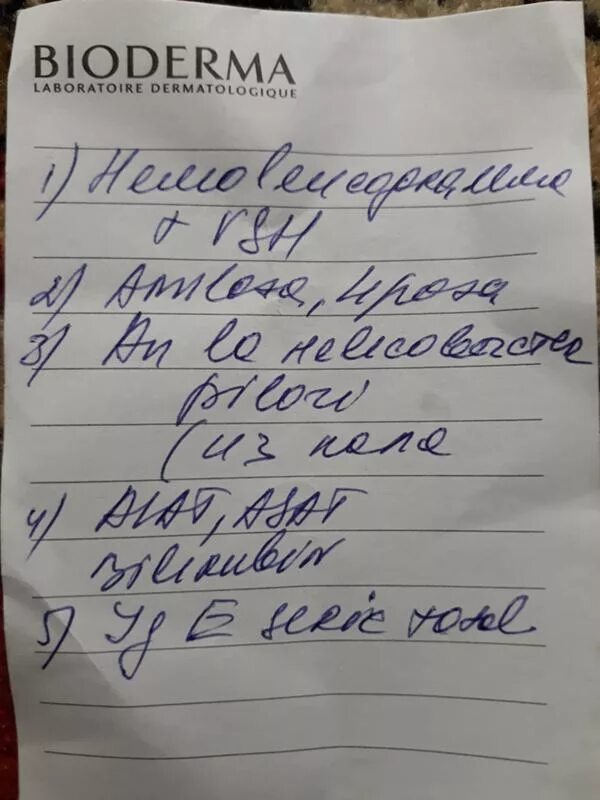 BIODERMA
LABORATOIRE DERMATOLOGIQUE
1) Hemoleucograma
+ VSH
2) Amilaza, lipaza
3) An la helicobacter
pilori
(из кала
4) ALAT, ASAT
Bilirubin
5) Ig E seric total